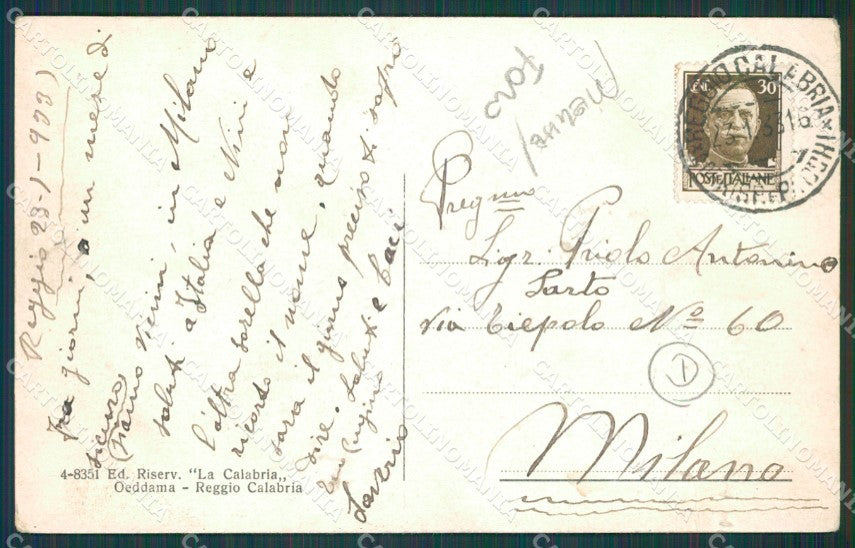 Reggio 23-1-933)
fra giorni, o un mese di
sicuro,
siamo vicini, in Milano
saluti a Italia e Ninì e
l'altra sorella che non
ricordo il nome, quando
sarà il giorno preciso ti saprò
dire. Saluti e baci
tuo cugino
4-8351 Ed. Riserv. "La Calabria„
Oeddama - Reggio Calabria
faro
CENT. 30
POSTE ITALIANE
REGGIO CALABRIA
Pregmo
Sigr. Priolo Antonino
Sarto
Via Tiepolo No 60
D
Milano
CARTOLINOMANIA